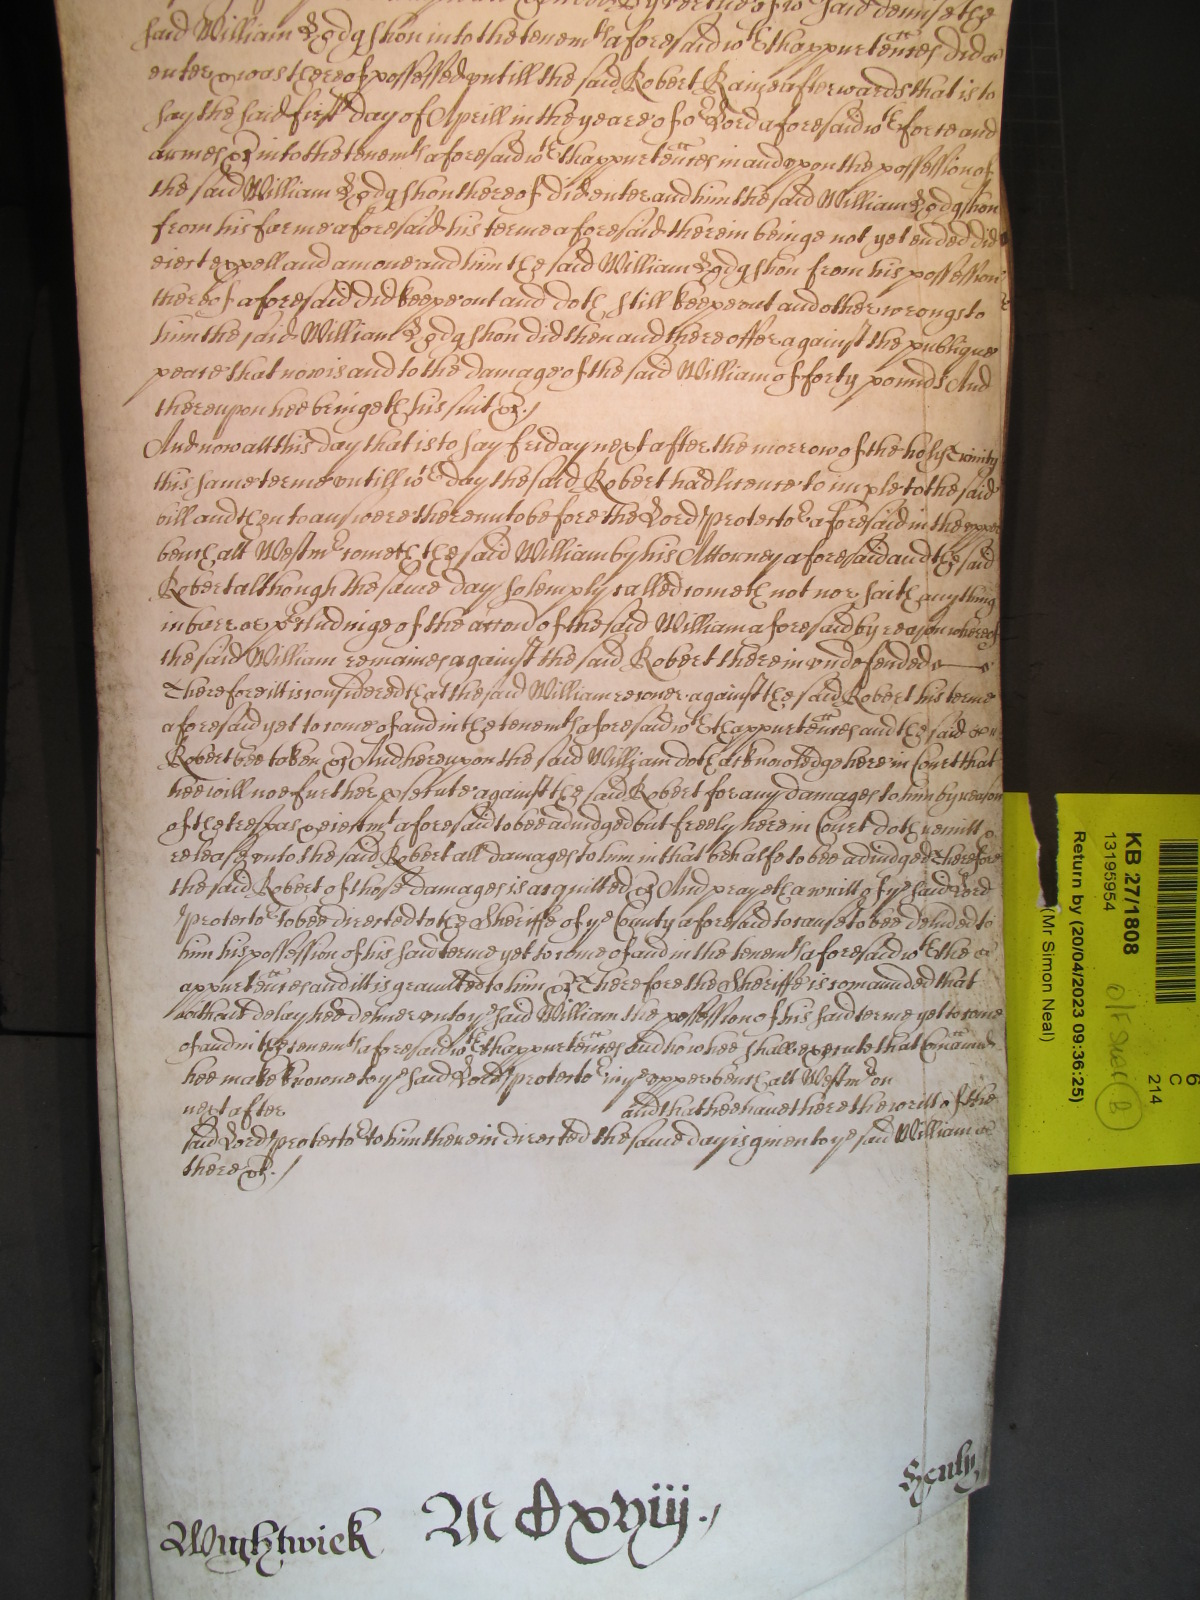 by vertue of wch said demise the
said William Hodgshon into the tenemts aforesaid wth thappurtences did
enter & was thereof possessed untill the said Robert Raine afterwards that is to
say the said first day of Aprill in the yeare of or Lord aforesaid wth force and
armes &c into the tenemts aforesaid wth thappurtences in and upon the possession of
the said William Hodgshon thereof did enter and him the said William Hodgshon
from his farme aforesaid his terme aforesaid therein beinge not yet ended did
eiect expell and amove and him the said William Hodgshon from his possession
thereof aforesaid did keepe out and doth still keepe out and other wrongs to
him the said William Hodgshon did then and there offer against the publique
peace that now is and to the damage of the said William of forty pounds And
thereupon hee bringeth his suit &c./
And now att this day that is to say friday next after the morrow of the holy Trinity
this same terme untill wch day the said Robert had licence to imple to the said
bill and then to answere thereunto before the Lord Protector aforesaid in the upper
bench att Westmr cometh the said William by his Attorney aforesaid and the said
Robert although the same day solemply called cometh not nor saith anything
in barr or p'cludinge of the accon of the said William aforesaid by reason whereof
the said William remaines against the said Robert therein undefended
Therefore itt is considered that the said William recover against the said Robert his terme
aforesaid yet to come of and in the tenemts aforesaid wth thappurtences and the said
Robert bee taken &c And hereupon the said William doth acknowledge here in Court that
hee will noe further p'secute against the said Robert for any damages to him by reason
of the trespas & eiectmt aforesaid to bee adiudged but freely here in Court doth remitt &
release unto the said Robert all damages to him in that behalfe to bee adiudged Therefore
the said Robert of those damages is acquitted &c And prayeth a writt of ye said Lord
Protector to bee directed to the Sheriffe of ye County aforesaid to cause to bee deliu'ed to
him his possession of his said terme yet to come of and in the tenemts aforesaid wth the
appurtences and itt is graunted to him &c Therefore the Sheriffe is comaunded that
without delay hee deliver unto ye said William the possession of his said terme yet to come
of and in the tenemts aforesaid wth thappurtences and how hee shall execute that
hee make knowne to ye said Lord Protector in ye upper bench att Westmr on
next after and that hee have there the writt of the
said Lord Protector to him therein directed the same day is given to ye said William
there &c./
Wightwick
KB 27/1808
13195954
Return by (20/04/2023 09:36:25)
(Mr Simon Neal)
6
C
214
B